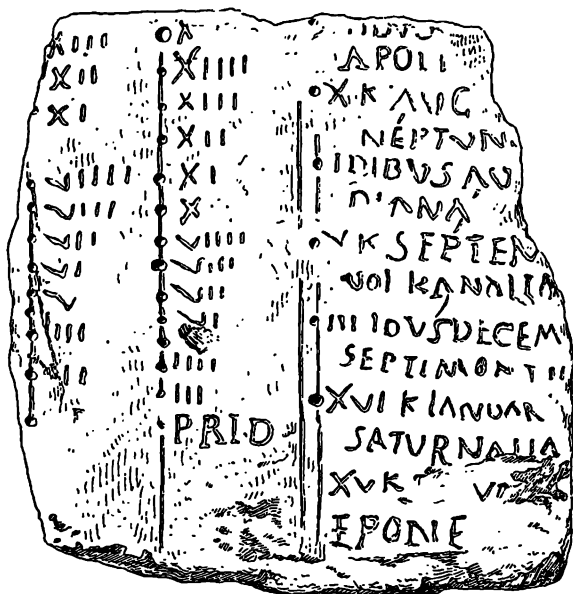 XIII
XII
XI
VIIII
VIII
VII
VI
V
IIII
III
X
XIIII
XIII
XII
XI
X
VIIII
VIII
VII
VI
IIII
III
PRID
APOLI
X K AVG
NÉPTUN
IDIBUS AU
DIANÁ
V K SEPTEN
VOLKANALIA
III IDUS DECEM
SEPTIMONTII
XVI K IANUAR
SATURNALIA
XV K
EPONE